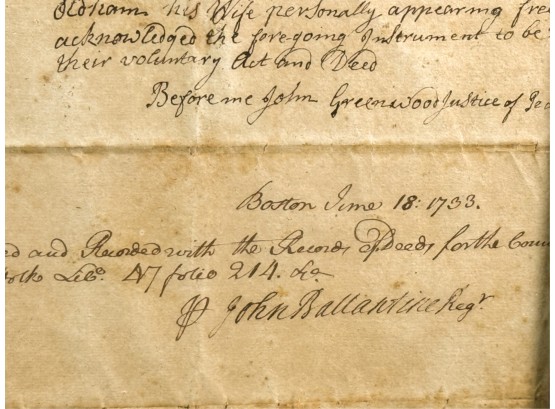 Oldham his Wife personally appearing free
acknowledged the fore-going Instrument to be
their voluntary Act and Deed
Before me John Greenwood Justice of Pea
Boston June 18: 1733.
ed and Recorded with the Records of Deeds for the Coun
folk Libo. 47 folio 214. &a
John Ballantine Regr.